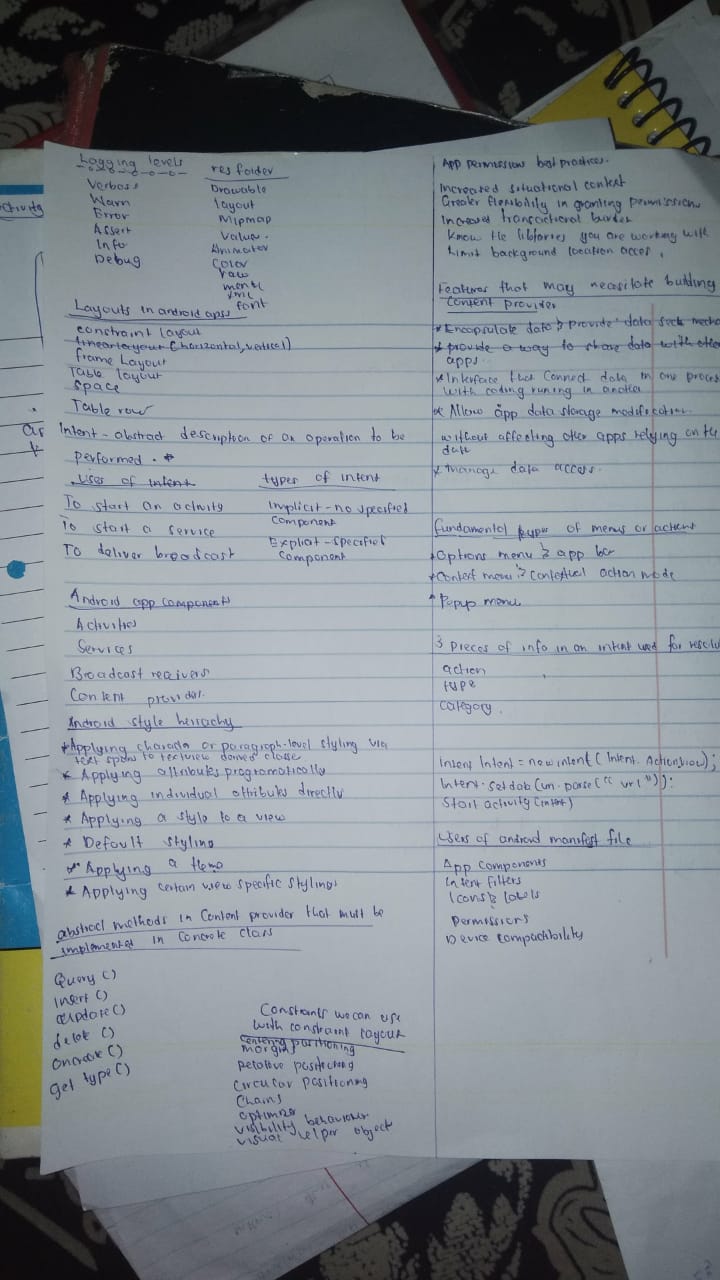 Logging levels
Verbose
Warn
Error
Assert
Info
Debug
res folder
Drawable
layout
Mipmap
Value.
Animator
Color
raw
menu
xml
font
Layouts in android apps
constraint layout
linearlayout (horizontal, vertical)
frame Layout
Table layout
space
Table row
Intent - abstract description of an operation to be
performed.
Uses of intent
To start an activity
To start a service
To deliver broadcast
types of intent
Implicit - no specified
component
Explicit - specified
component
Android app components
Activities
Services
Broadcast receivers
Content
Android style
* Applying or paragraph-level styling via
text spans to textview classes
* Applying attributes programatically
* Applying individual attributes directly
* Applying a style to a view
* Default styling
* Applying a
* Applying certain view specific stylings
abstract methods in Content provider that must be
implemented in concrete class
Query ()
insert ()
update ()
delete ()
oncreate ()
get type ()
Constraints we can use
with constraint layout
Centering positioning
margins
Relative positioning
Circular positioning
Chains
optimizer
visibility behaviour
visual helper object
App permissions best practices.
Increased situational context
Greater flexibility in granting permissions
Increased transactional burden
Know the libraries you are working with
Limit background location acces.
Features that may necesitate building
Content provider
* Encapsulate data & provide data
* provide a way to share data with other
apps.
* Interface that connect data in one process
with coding runing in another
* Allow app data storage modification
without affecting other apps relying on the
data
* manage data access.
fundamental types of menus or actions
* Options menu & app bar
* Context menu & contextual action mode
* Popup menu
3 pieces of info in an intent used for
action
type
category.
Intent Intent = new intent (Intent. Actionview);
Intent. (uri. parse("url"));
Start activity (intent)
Users of android manifest file
App components
Intent filters
Icons & labels
Permissions
Device